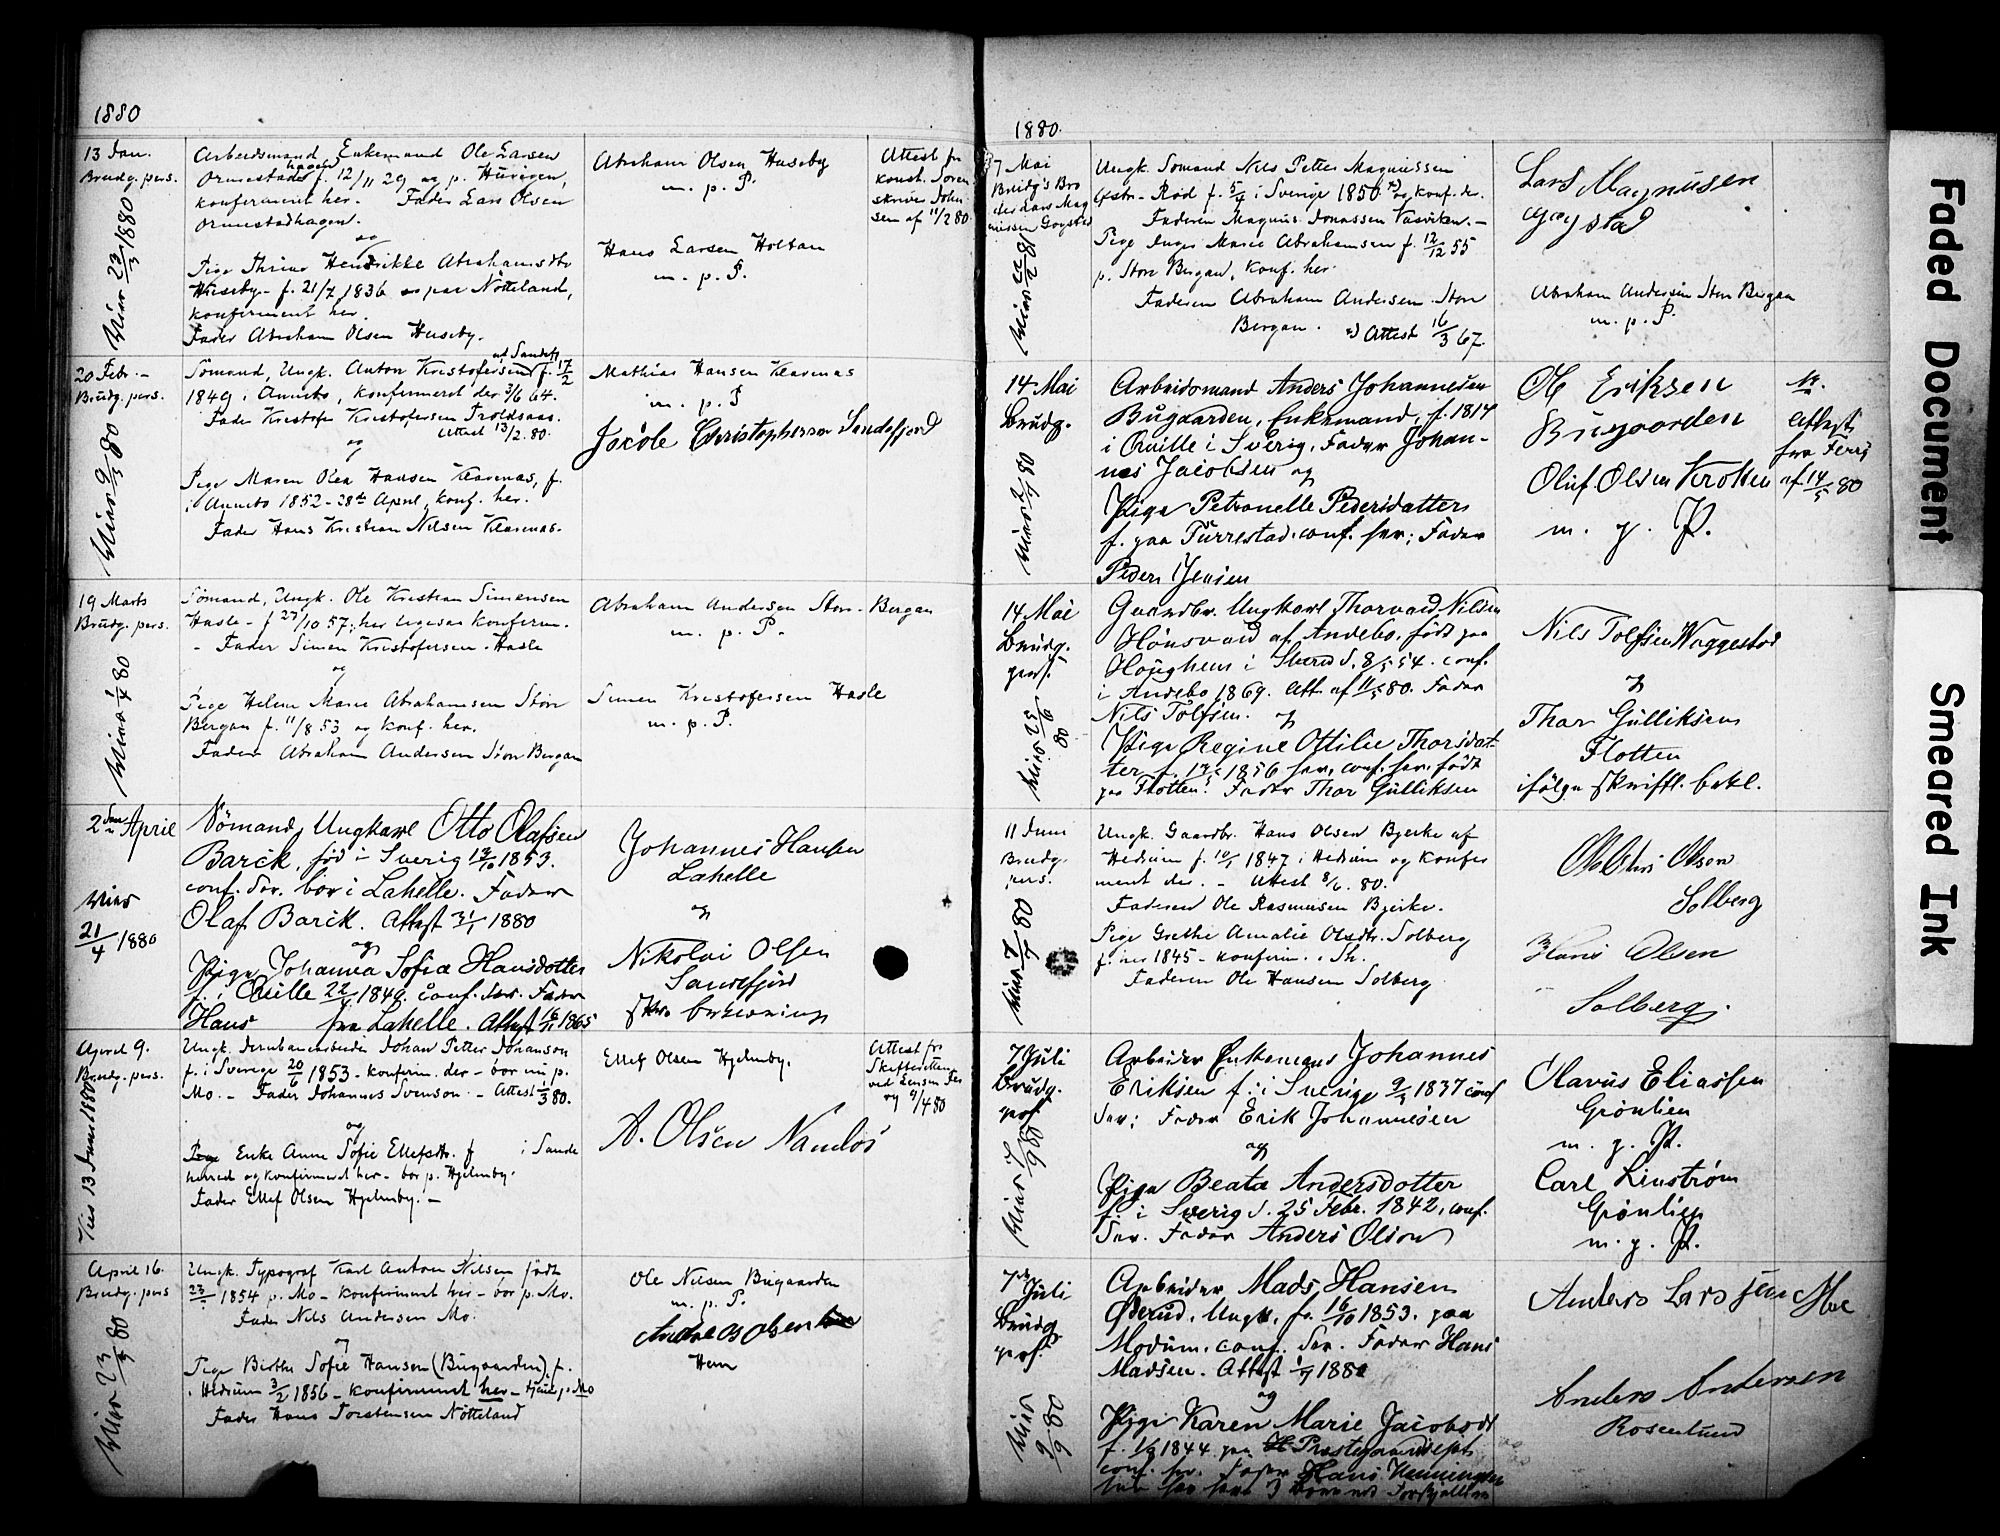 1880
13 Jan.
Brudg. pers.
Viet 23/3 1880
Arbeidsmand Enkemand Ole Larsen
Ormestadhagen f. 12/11 29 og p. Hüvigen,
konfirmeret her. Fader Lars Olsen
Ormestadhagen.
og
Pige Thrine Hendrikke Abrahamsdtr
Huseby - f. 21/7 1836 paa Nötteland,
konfirmeret her.
Fader Abraham Olsen Huseby.
Abraham Olsen Huseby
m. p. P.
Hans Larsen Holtan
m. p. P.
Attest fr
konst. Soren
skriver John
sen af 11/2 80
20 Febr. -
Brudg. pers.
Viet 9/3 80
Sömand, Ungk. Anton Kristofersen af Sandefj. f. 17/2
1849 i Annebo, konfirmeret der 3/6 64.
Fader Kristofer Kristofersen Troldsaas.
Attest 13/2. 80.
og
Pige Maren Olea Hansen Klavenas, f.
i Annebo 1852 - 28de April, konf. her.
Fader Hans Kristian Nilsen Klavenas.
Mathias Hansen Klavenas
m. p. P
Jacob Christophersen Sandefjord
19 Marts
Brudg. pers.
Viet 1/4 80
Sömand, Ungk. Ole Kristian Simensen
Hasle - f 27/10 57; her ligesaa konfirm.
- Fader Simen Kristofersen Hasle
og
Pige Helene Marie Abrahamsen Store
Bergan f. 11/8 53 og konf. her.
Fader Abraham Andersen Store Bergan
Abraham Andersen Store-Bergan
m. p. P.
Simen Kristofersen Hasle
m. p. P.
2den April
Viet
21/4 1880
Sömand, Ungkarl Otto Olafsen
Barck, föd i Sverig 1853.
conf. der. bor i Lahelle. Fader
Olaf Barck. Attest 1880
og
Pige Johanna Sofie Hansdotter
f. i Qville 22/4 1849. conf. der. Fader
Hans fra Lahelle. Attest 1865
Johannes Hansen
Lahelle
og
Nikolai Olsen
Sandefjord
April 9.
Brudg. pers.
Viet 13 Juni 1880
Ungk. Jernbanearbeider Johan Petter Johanson
f. i Sverige 20/6 1853 - konfirm. der - bor nu p.
Mo. - Fader Johannes Svenson. - Attest 1/3 80.
og
Pige Enke Anne Sofie Ellefsdtr. f i Sande
herred og konfirmeret her - bor p. Hjelmby.
Fader Ellef Olsen Hjelmby. -
Ellef Olsen Hjelmby.
A. Olsen Namlös
Attest fr
Skifteretten
ved
9/4 80
April 16.
Brudg. pers
Viet 23/5 80
Ungk. Typograf Karl Anton Nilsen födt
1854 p. Mo - konfirmeret her - bor p. Mo.
Fader Nils Andersen Mo.
og
Pige Birthe Sofie Hansen (Bugaarden) f.
i Hedrum 3/2 1856 - konfirmeret her - tjener p. Mo
Fader Hans Torstensen Nötteland
Ole Nilsen Bugaarden
m. p. P.
Andreas Olsen
Hem
1880.
7 Mai
Brudg's Bro
der Lars Mag
nussen Gogstad
Ungk. Sömand Nils Petter Magnussen
Röd f. 5/4 i Sverige 1850 *) og konf. der.
Faderen Magnus Jonassen. -
Pige Inger Marie Abrahamsen f. 12/12 55
p. Store Bergan, konf. her.
Faderen Abraham Andersen Store
Bergan. *) Attest 16/3 67.
Lars Magnusen
Gogstad
Abraham Andersen Store Bergan
m. p. P.
14 Mai
Brudg.
Arbeidsmand Anders Johannesen
Bugaarden, Enkemand, f. 1814
i Qville i Sverig, Fader Johan-
nes Jacobsen og
Pige Petronelle Pedersdatter
f. paa Furrestad. conf. her; Fader
Peder Jensen
Ole Eriksen
Bugaarden
Oluf Olsen Krokken
m. p. P.
Attest
fra
af 14/5 80
14 Mai
Brudg.
pers.
Gaardbr. Ungkarl Thorvald Nilsen
Hönsvald af Andebo, födt paa
i 8/5 54. conf.
i Andebo 1869. Att. af 11/5 80. Fader
Nils Tolfsen. og
Pige Regine Ottilie Thorsdat-
ter f. 1856 her, conf. her, födt
paa Flotten. Fader Thor Gulliksen
Nils Tolfsen Waggestad
og
Thor Gulliksen
Flotten
ifölge skriftl. bekl.
11 Juni
Brudg.
pers.
Ungk. Gaardbr. Hans Olsen Bjerke af
Hedrum f. 10/1 1847 i Hedrum og konfir
meret der. - Attest 8/6. 80.
Faderen Ole Rasmusen Bjerke.
Pige Grethe Amalie Olsdtr. Solberg
f. her 1845 - konfirm.
Faderen Ole Hansen Solberg
Olsen
Solberg
Hans Olsen
Solberg.
7 Juli
Brudg.
pers.
Arbeider Enkemand Johannes
Eriksen f. i Sverige 1837 conf
der; Fader Erik Johannesen
og
Pige Beata Andersdotter
f. i Sverig d. 25 Febr. 1842, conf.
der. Fader Anders Olson
Olavus Eliassen
Grönlien
m. p. P.
Carl Linström
Grönlien
m. p. P.
7de Juli
Brudg.
pers.
Viet
9/9 80
Arbeider Mads Hansen
Öderud, Ungk. f. 16/10 1853. paa
Modum. conf. der. Fader Hans
Madsen. Attest 1880
og
Pige Karen Marie Jacobsdt
f. 1844 paa
conf. her. Fader
Anders Larsen Moe
Anders Andersen
Rosenlund
Faded Document
Smeared Ink